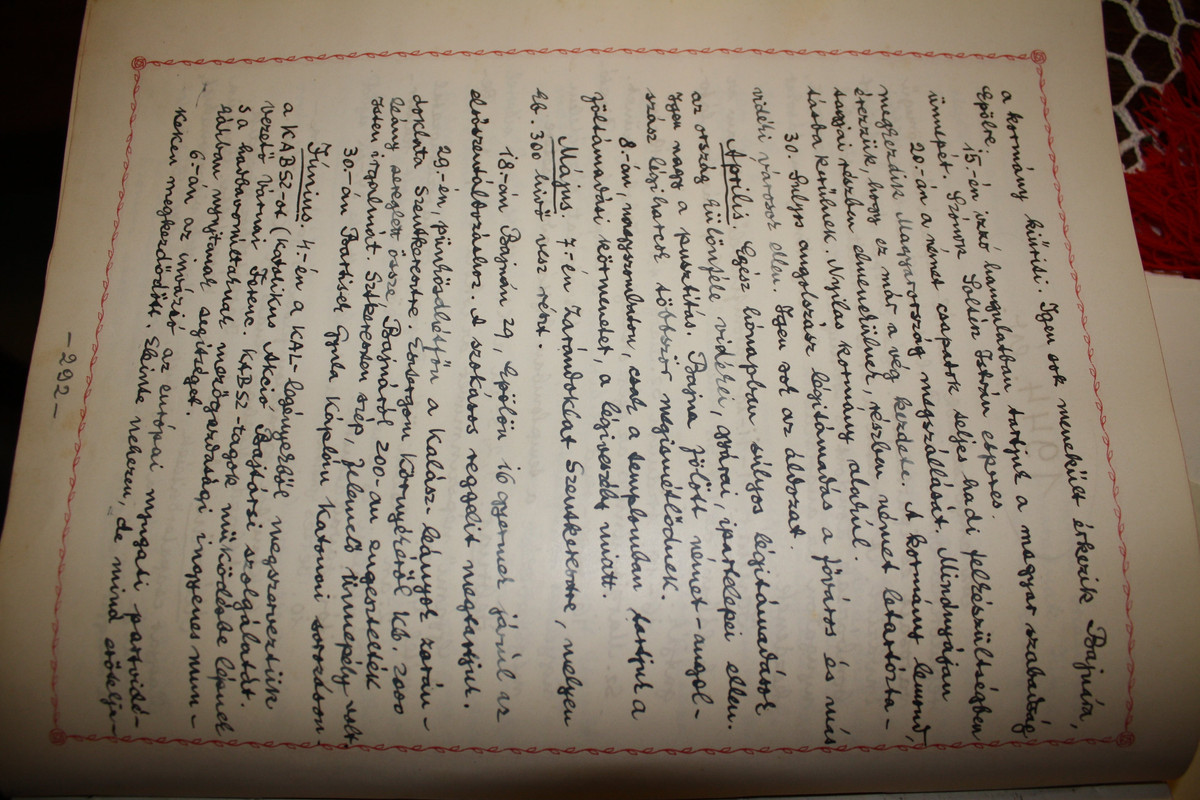 a kormány küridi. Igen sok menekült érkezik Bajnára,
Epölre.
15.-én izzó hangulatban tartjuk a magyar szabadság
ünnepét. Szónok Soltész István esperes.
20.-án a német csapatok teljes hadi felkészültségben
megkezdik Magyarország megszállását. Mindnyájan
érezzük, hogy ez már a vég kezdete. A kormány lemond,
tagjai részben elmenekülnek, részben német letartózta-
tásba kerülnek. Nyilas kormány alakul.
30. Sulyos angolszász légitámadás a főváros és más
vidéki városok ellen. Igen sok az áldozat.
Április. Egész hónapban súlyos légitámadások
az ország különféle vidékei, gyárai, ipartelepei ellen.
Igen nagy a pusztitás. Bajna fölött német-angol-
szász légiharcok többször megismétlődnek.
8.-án, nagyszombaton, csak a templomban tartjuk a
föltámadási körmenetet, a légiveszély miatt.
Május. 7.-én zarándoklat Szentkeresztre, melyen
kb. 300 hívő vesz részt.
18.-án Bajnán 29, Epölön 16 gyermek járul az
elsőszentáldozáshoz. A szokásos reggelit megtartjuk.
29.-én, pünkösdhétfőn a Kalász-leányok zarán-
doklata Szentkeresztre. Esztergom környékéről kb. 2000
leány sereglett össze, Bajnáról 200-an engesztelték
Isten irgalmát. Sztkereszten szép, felemelő ünnepély volt.
30-án Bartisek Gyula káplán katonai soroztáson
Június. 4.-én a KAL-legényekből megszerveztük
a KABSZ-ot (Katolikus Akció Bajtársi szolgálatát.
vezető Virnai Ferenc. KABSZ-tagok működésbe lépnek
s a hadbavonultaknak mezőgazdasági ingyenes mun-
kában, nyujtanak segítséget.
6.-án az invázió az európai nyugati partvidé-
keken megkezdődött. Eleinte nehezen, de mind erőtelje-
-292-